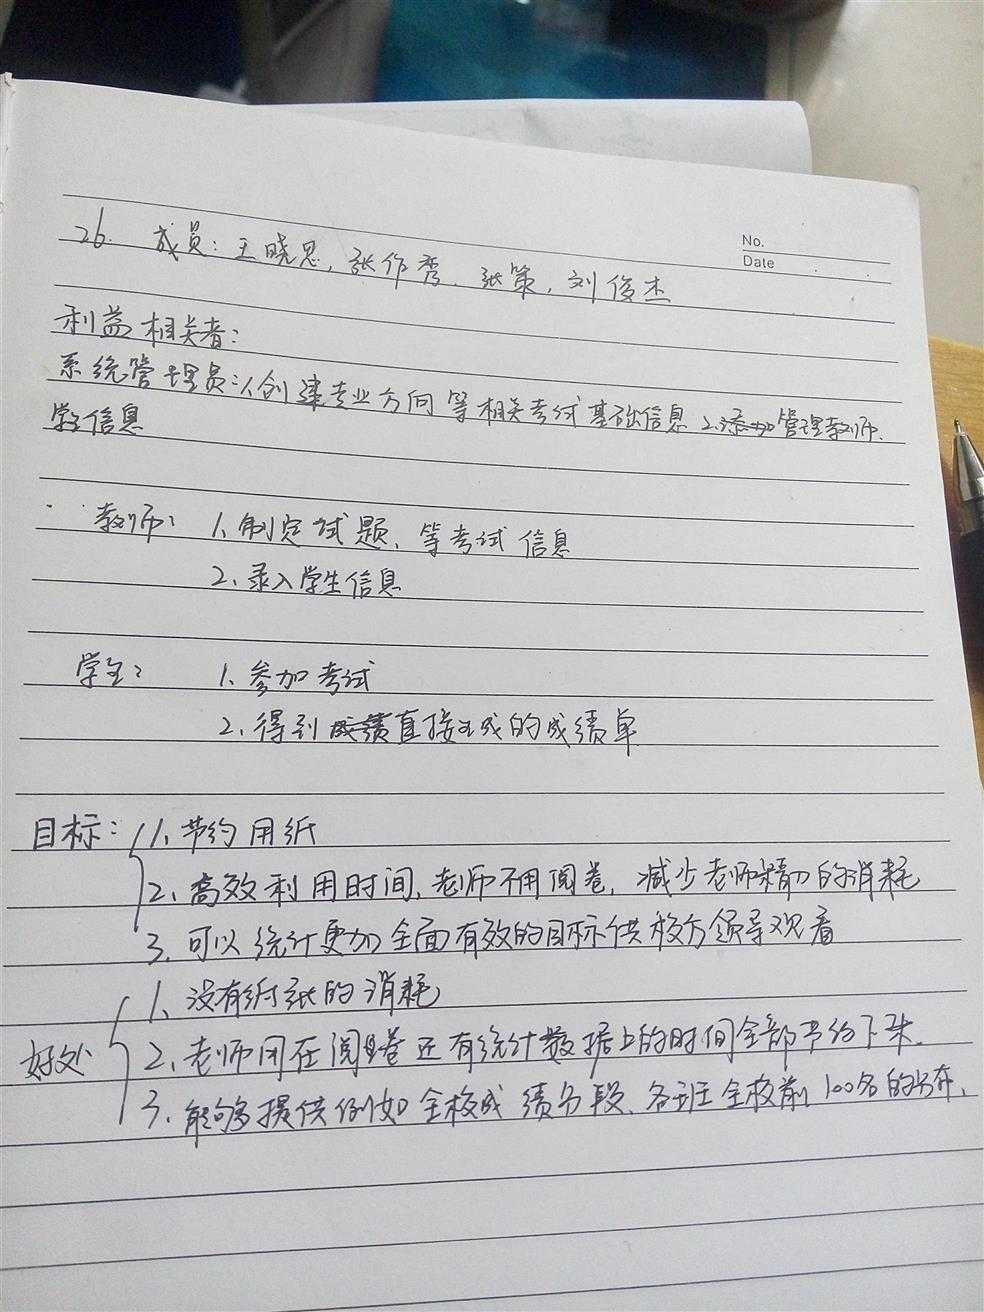 No.
Date
26. 成员：王晓思，张作秀、张策，刘俊杰
利益相关者：
系统管理员：1.创建专业方向等相关考试基础信息 2.添加管理教师、
学生信息
教师： 1、制定试题、等考试信息
2、录入学生信息
学生： 1、参加考试
2、得到成绩直接生成的成绩单
目标： 1、节约用纸
2、高效利用时间，老师不用阅卷，减少老师精力的消耗
3、可以统计更加全面有效的目标供校方领导观看
1、没有纸张的消耗
好处 2、老师用在阅卷还有统计数据上的时间全部节约下来、
3、能够提供例如全校成绩分段、各班全校前100名的分布、